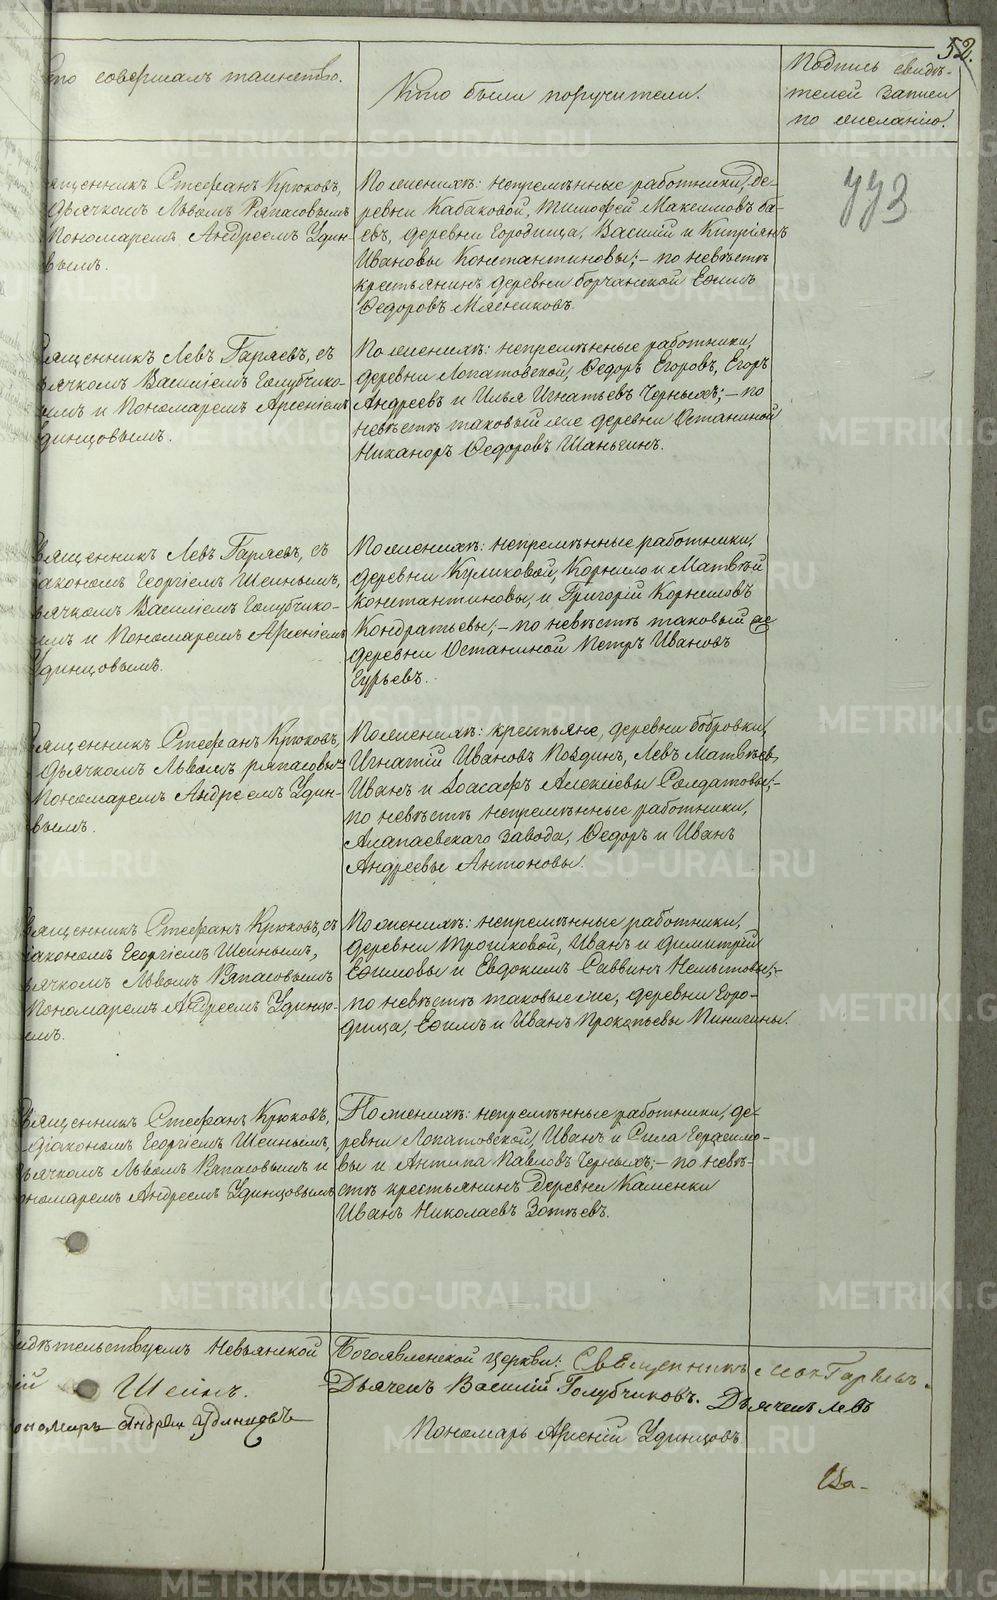 52.
Кто совершалъ таинство.
Кто были поручители.
Подпись свидѣ-
телей записи
по желанію.
773
Священникъ Стефанъ Крюковъ,
дьячкомъ Львомъ Ряпасовымъ
Пономаремъ Андреемъ Удин-
вымъ.
По женихѣ: непремѣнные работники, де-
ревни Кабаковой, Тимофей Максимовъ Ба-
евъ, деревни Городища, Василій и Кипріянъ
Ивановы Константиновы; – по невѣстѣ
крестьянинъ деревни Борчанской Ефимъ
Ѳедоровъ Мясниковъ.
Священникъ Левъ Гаряевъ, съ
дьячкомъ Василіемъ Голубчико-
вымъ и Пономаремъ Арсеніемъ
Удинцовымъ.
По женихѣ: непремѣнные работники,
деревни Лопатовской, Ѳедоръ Егоровъ, Егоръ
Андреевъ и Илья Игнатьевъ Черныхъ; – по
невѣстѣ таковый же деревни Останиной
Никаноръ Ѳедоровъ Шаньгинъ.
Священникъ Левъ Гаряевъ, съ
діакономъ Георгіемъ Шеинымъ,
дьячкомъ Василіемъ Голубчико-
вымъ и Пономаремъ Арсеніемъ
Удинцовымъ.
По женихѣ: непремѣнные работники,
деревни Куликовой, Корнило и Матвѣй
Константиновы, и Григорій Корниловъ
Кондратьевы; – по невѣстѣ таковый же
деревни Останиной Петръ Ивановъ
Гурьевъ.
Священникъ Стефанъ Крюковъ,
дьячкомъ Львомъ Ряпасовы-
Пономаремъ Андреемъ Удин-
вымъ.
По женихѣ: крестьяне, деревни Бобровки,
Игнатій Ивановъ Поздинъ, Левъ Матвѣевъ,
Иванъ и Іоасафъ Алексіевы Солдатовы; –
по невѣстѣ непремѣнные работники,
Алапаевскаго завода, Ѳедоръ и Иванъ
Андреевы Антоновы.
Священникъ Стефанъ Крюковъ, съ
діакономъ Георгіемъ Шеинымъ,
дьячкомъ Львомъ Ряпасовымъ
Пономаремъ Андреемъ Удинцо-
вымъ.
По женихѣ: непремѣнные работники,
деревни Трошковой, Иванъ и Димитрій
Ефимовы и Евдокимъ Саввинъ Нехыстовы; –
по невѣстѣ таковые же, деревни Горо-
дища, Ефимъ и Иванъ Прокопьевы Пинигины.
Священникъ Стефанъ Крюковъ,
съ діакономъ Георгіемъ Шеинымъ,
дьячкомъ Львомъ Ряпасовымъ и
Пономаремъ Андреемъ Удинцовымъ
По женихѣ: непремѣнные работники, де-
ревни Лопатовской, Иванъ и Сила Герасимо-
вы и Антипа Павловъ Черныхъ; – по невѣ-
стѣ крестьянинъ деревни Каменки
Иванъ Николаевъ Зотѣевъ.
свидѣтельствуемъ Невьянской Богоявленской церкви: Священникъ Левъ Гаряевъ.
Шеинъ. Дьячекъ Василій Голубчиковъ. Дьячекъ Левъ
Пономарь Андрей Удинцовъ
Пономарь Арсеній Удинцовъ
METRIKI.GASO-URAL.RU